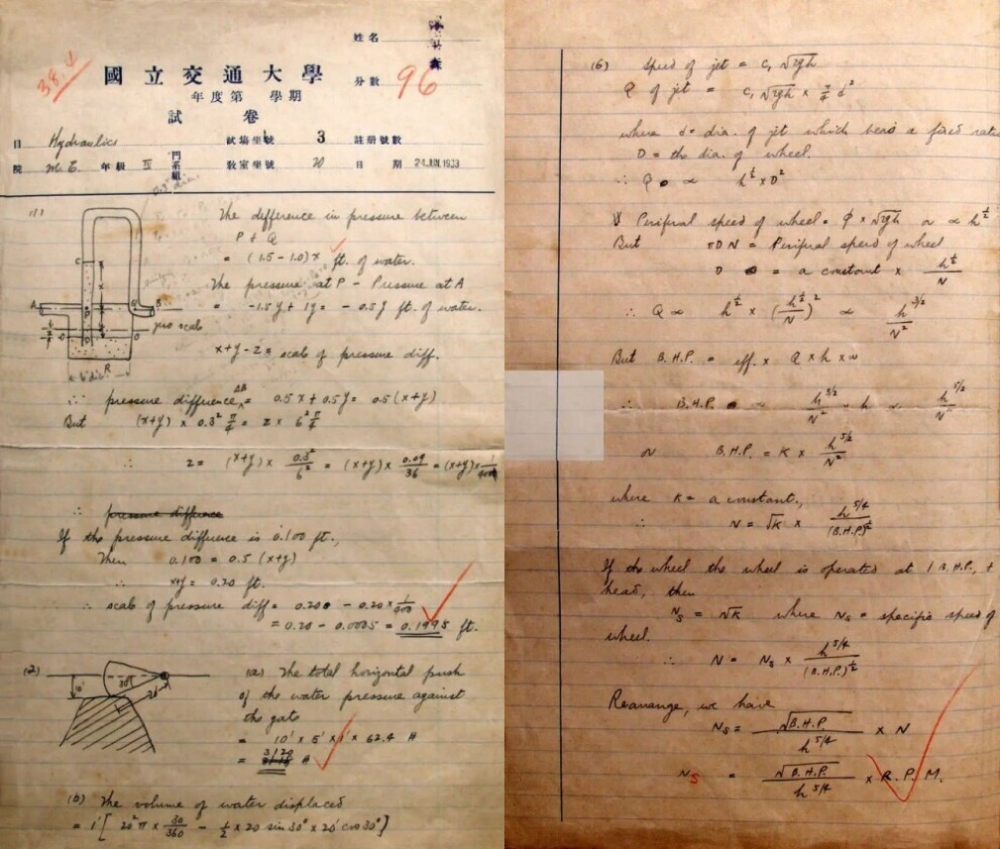 姓名
38.4
國立交通大學
分數 96
年度第 學期
試 卷
目 Hydraulics 試場坐號 3 註册號數
院 M.E. 年級 IV 門系組 教室坐號 20 日期 24 JUN 1933
0.3" dia.
(1) The difference in pressure between
P & Q
= (1.5 - 1.0)x ft. of water.
The pressure at P - Pressure at A
= -1.5y + 1y = -0.5y ft. of water.
x+y-z = scale of pressure diff.
C
A
B
zero scale
R
6" dia.
∴ pressure difference AB = 0.5x + 0.5y = 0.5(x+y)
But (x+y) × 0.3² π/4 = z × 6² π/4
∴ z = (x+y) × 0.3²/6² = (x+y) × 0.09/36 = (x+y) × 1/400
∴ pressure difference
If the pressure difference is 0.100 ft.,
Then 0.100 = 0.5 (x+y)
∴ x+y = 0.20 ft.
∴ scale of pressure diff = 0.200 - 0.20 × 1/400
= 0.20 - 0.0005 = 0.1995 ft.
(2) (a) The total horizontal push
of the water pressure against
the gate
10'
30°
20'
= 10' × 5' × 1' × 62.4 #
= 3120 #
(b) The volume of water displaced
= 1' [ 20² π × 30/360 - 1/2 × 20 sin 30° × 20' cos 30° ]
(6) Speed of jet = c, √2gh
Q of jet = c, √2gh × π/4 d²
where d = dia. of jet which bears a fixed ratio
D = the dia. of wheel.
∴ Q ∝ h^½ × D²
Perifural speed of wheel = φ × √2gh or ∝ h^½
But πDN = Perifural speed of wheel
D = a constant × h^½/N
∴ Q ∝ h^½ × (h^½/N)² ∝ h^3/2/N²
But B.H.P. = eff. × Q × h × w
∴ B.H.P. ∝ h^3/2/N² × h ∝ h^5/2/N²
or B.H.P. = K × h^5/2/N²
where K = a constant.,
∴ N = √K × h^5/4/(B.H.P.)^½
If the wheel the wheel is operated at 1 B.H.P.,
head, then
Ns = √K where Ns = specific speed of
wheel.
∴ N = Ns × h^5/4/(B.H.P.)^½
Rearrange, we have
Ns = √B.H.P/h^5/4 × N
Ns = √B.H.P./h^5/4 × R.P.M.